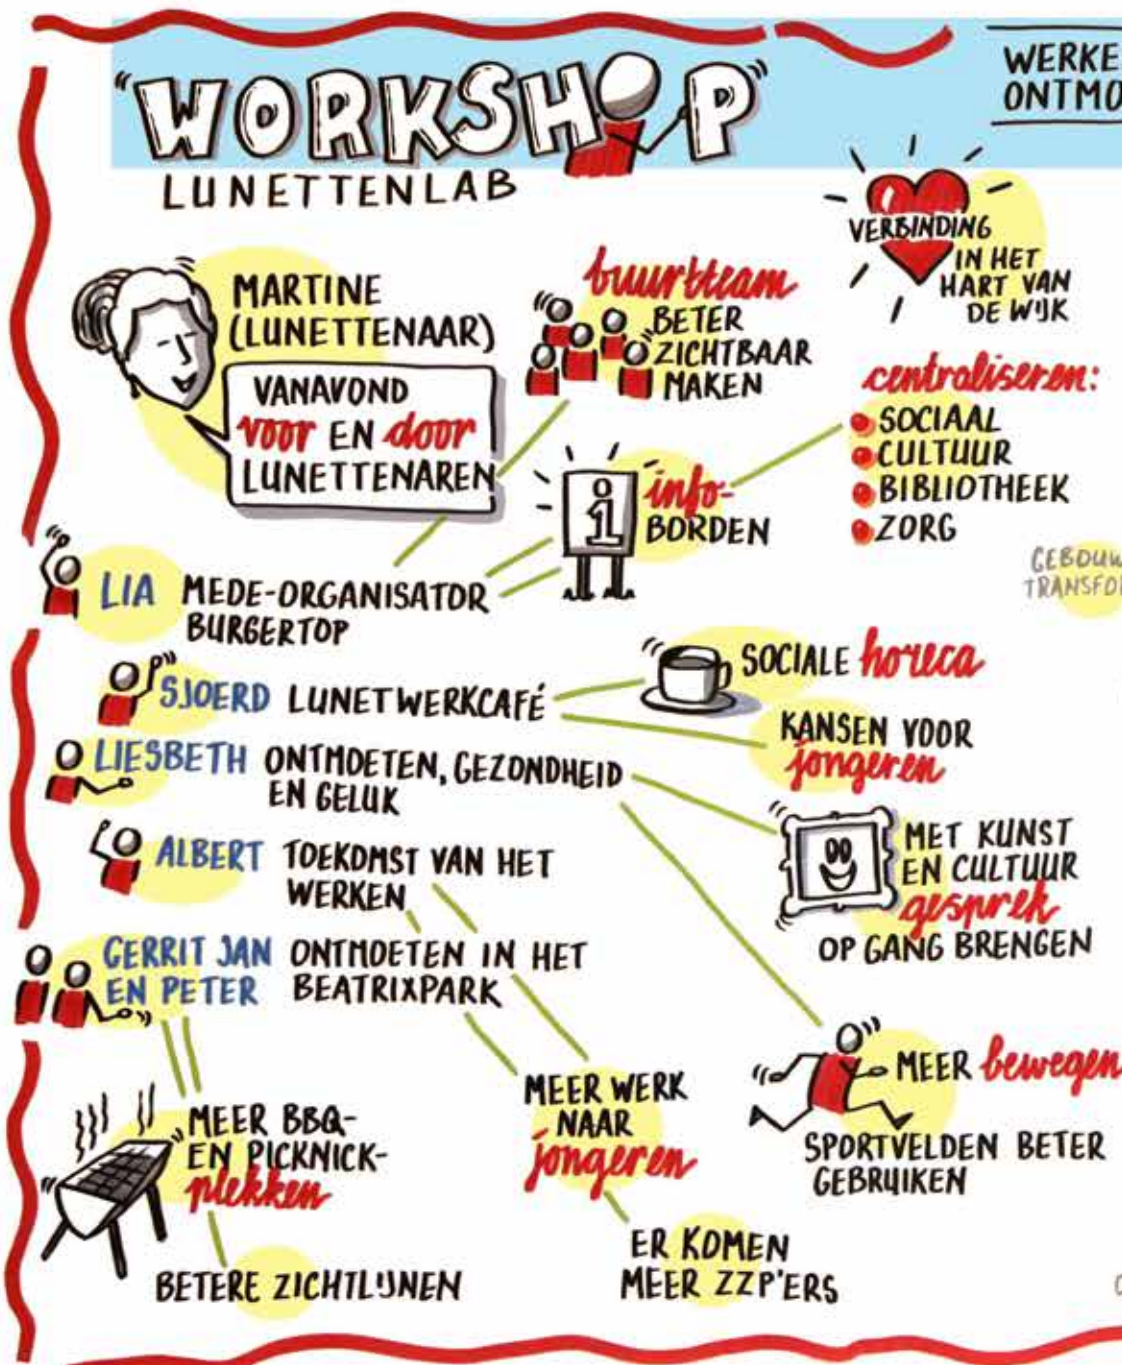 "WORKSHOP"
LUNETTENLAB
WERKE
ONTMO
VERBINDING
IN HET
HART VAN
DE WIJK
MARTINE
(LUNETTENAAR)
VANAVOND
voor EN door
LUNETTENAREN
buurtteam
BETER
ZICHTBAAR
MAKEN
centraliseren:
SOCIAAL
CULTUUR
BIBLIOTHEEK
ZORG
i
info-
BORDEN
GEBOUW
TRANSFO
LIA MEDE-ORGANISATOR
BURGERTOP
SJOERD LUNETWERKCAFÉ
SOCIALE horeca
KANSEN VOOR
jongeren
LIESBETH ONTMOETEN, GEZONDHEID
EN GELUK
MET KUNST
EN CULTUUR
gesprek
OP GANG BRENGEN
ALBERT TOEKOMST VAN HET
WERKEN
GERRIT JAN ONTMOETEN IN HET
EN PETER BEATRIXPARK
MEER bewegen
SPORTVELDEN BETER
GEBRUIKEN
MEER WERK
NAAR
jongeren
MEER BBQ-
EN PICKNICK-
plekken
ER KOMEN
MEER ZZP'ERS
BETERE ZICHTLIJNEN